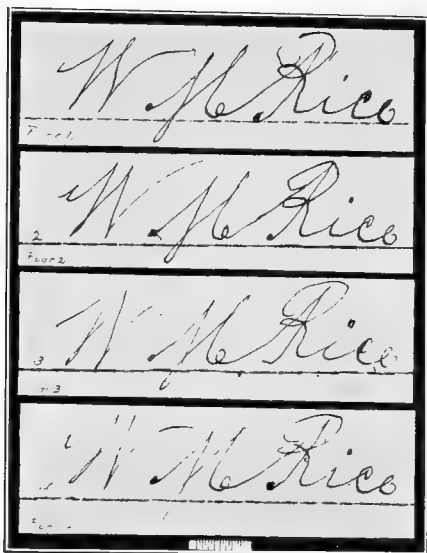 W M Rice
W M Rice
2
W M Rice
3
W M Rice